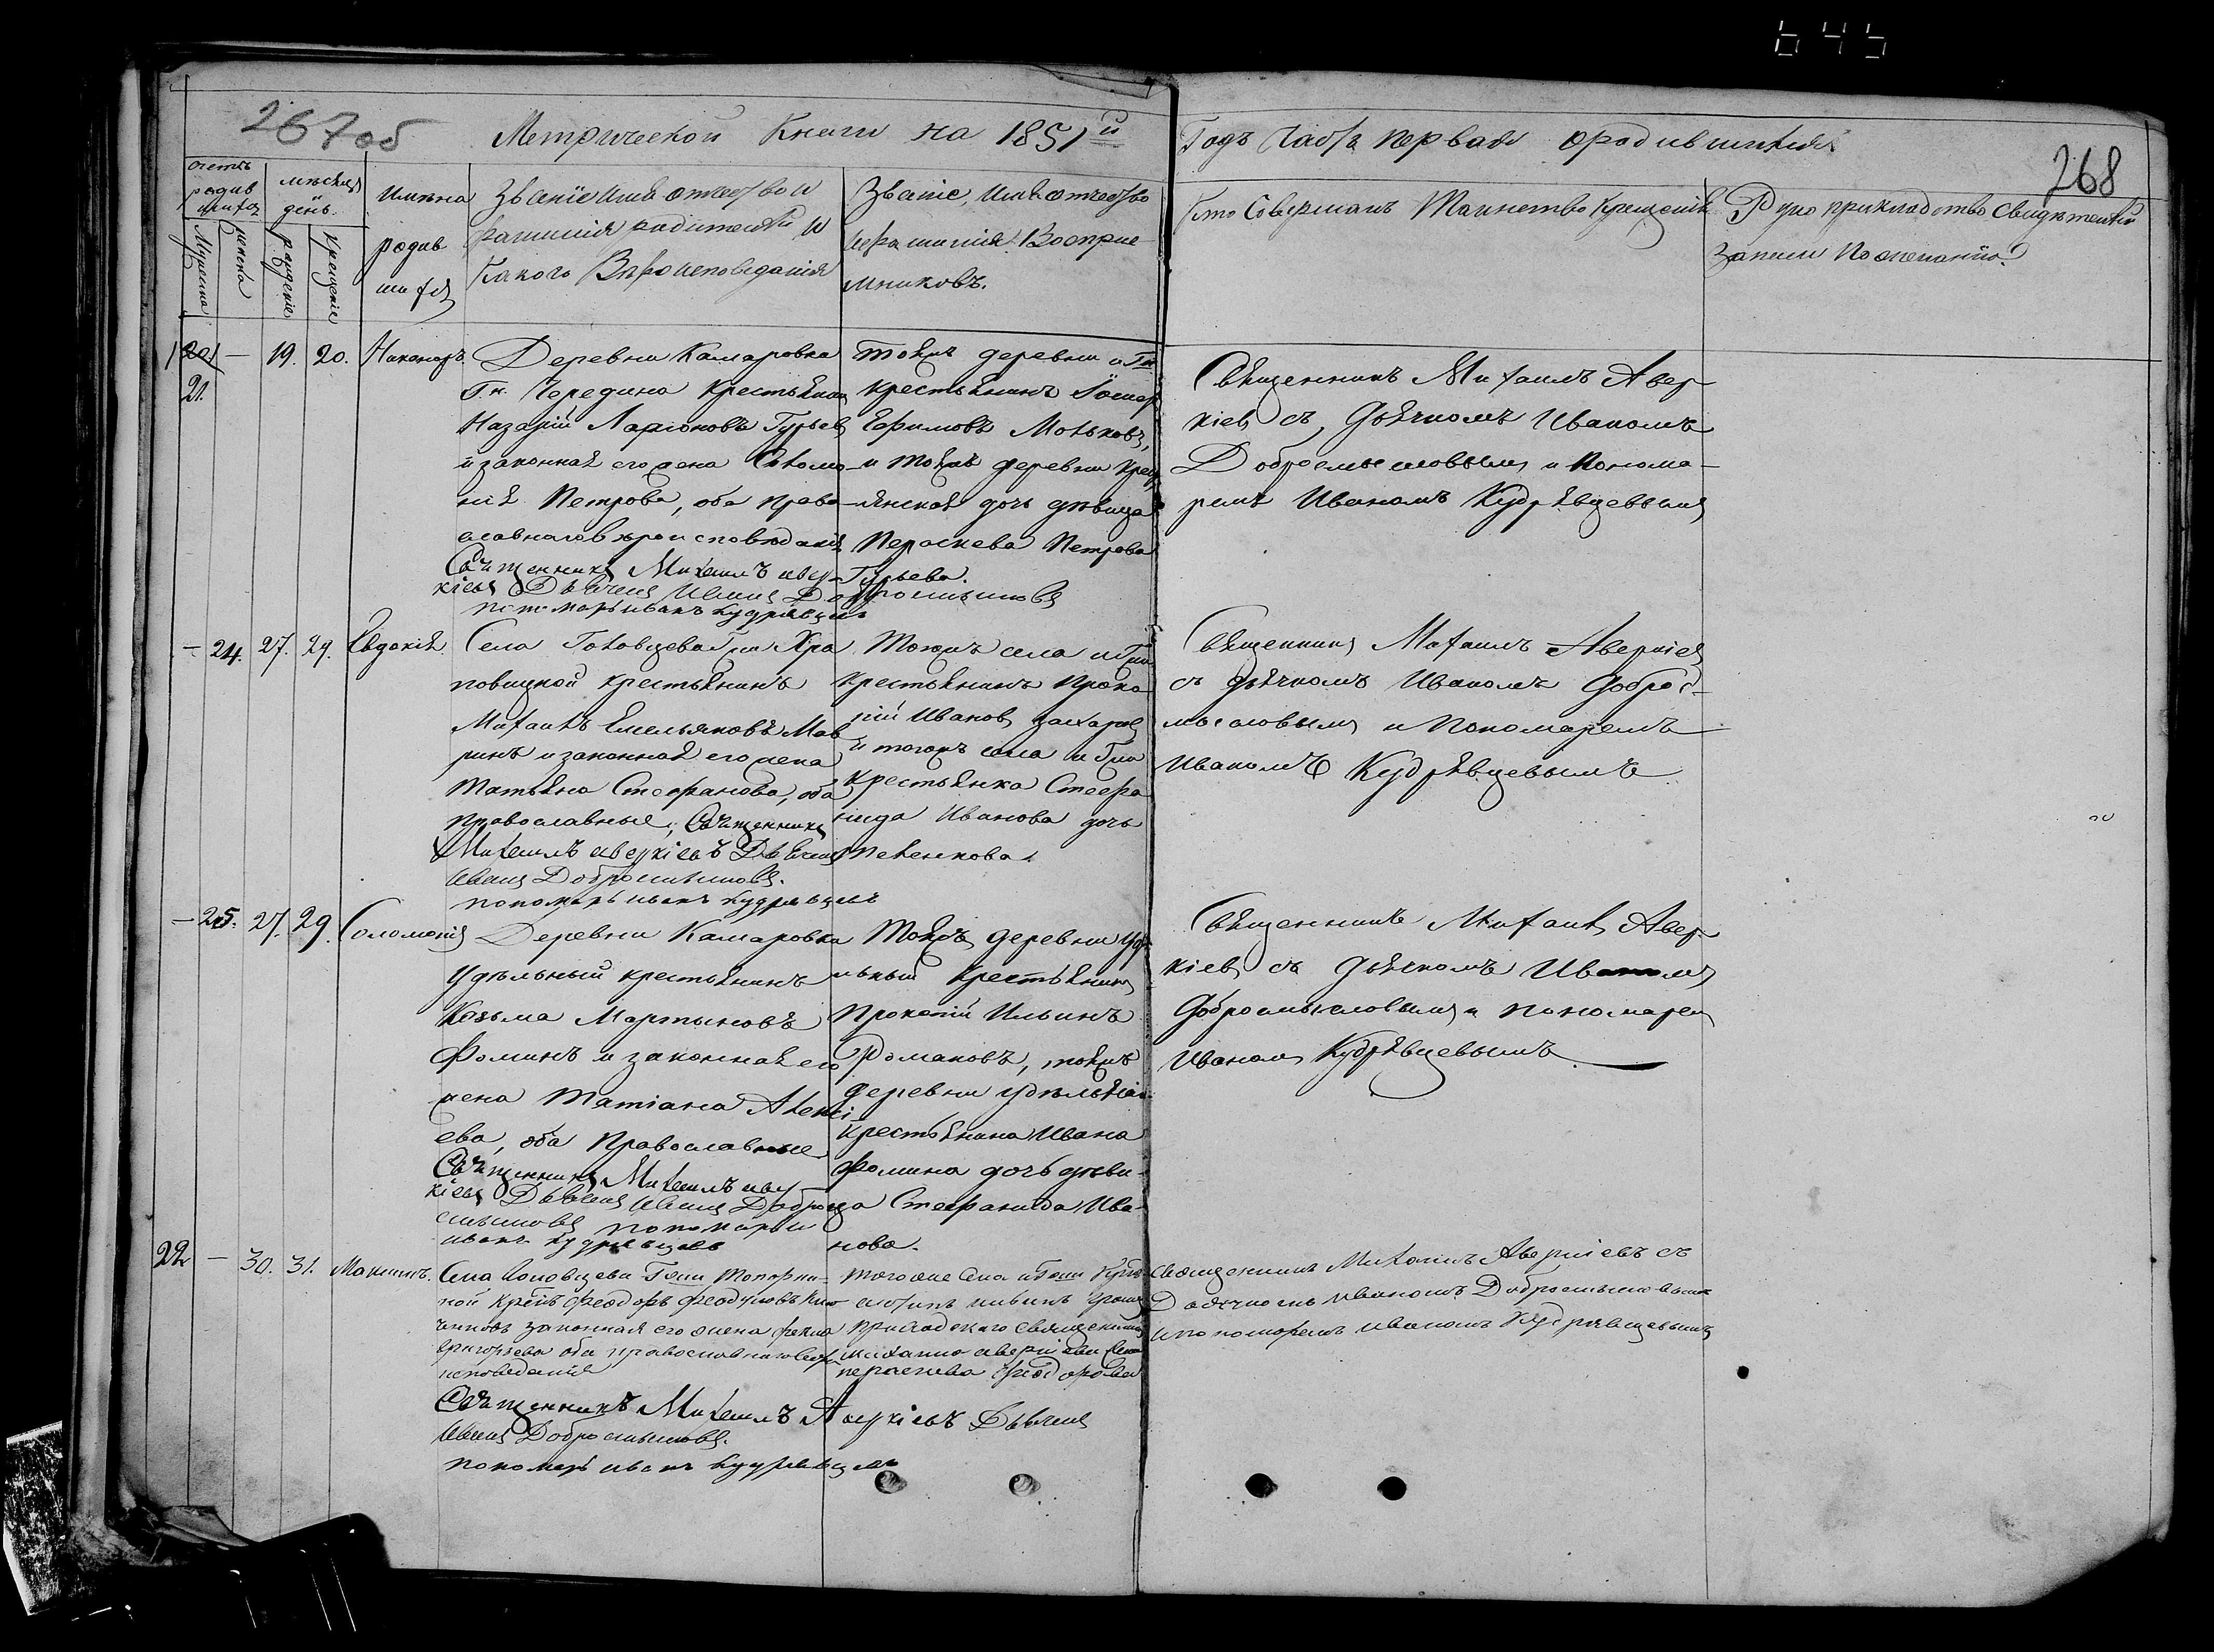 645
267об
Метрической Книги на 1851й
Годъ Часть первая о родившихся
268
Счетъ родившихся
Мужеска
женска
мѣсяцъ день.
рожденіе
крещеніе
Имѣна родившихся
Званіе Имя отчество и
фамилія родителей и
Какого Вѣроисповеданія
Званіе, Имя отчество
и фамилія Восприе-
мниковъ.
Кто Совершалъ Таинство Крещенія
Рукоприкладство Свидѣтелей
Записи По желанію.
21. — 19. 20. Никаноръ
Деревни Камаровка
Гн. Чередина Крестьянин
Назарій Ларіоновъ Гурьев
и законная его жена Соломо-
нія Петрова, оба Право-
славнаго вѣроисповѣданія
Священникъ Михаилъ Авер-
кіевъ Дьячекъ Иванъ Добросмысловъ
пономарь иванъ кудрявцевъ
тояжъ деревни и Гна
Крестьянинъ
Ефимовъ Моньковъ,
и тояжъ деревни Крест
янская дочь дѣвица
Пераскева Петрова
Гурьева.
Священникъ Михаилъ Авер-
кіев съ Дьячкомъ Иваномъ
Добросмысловымъ и Понома-
ремъ Иваномъ Кудрявцевымъ
— 24. 27. 29. Евдокія
Села Головцева Гжи Хра
повицкой Крестьянинъ
Михаилъ Емельяновъ Мав
ринъ и законная его жена
Татьяна Стефанова, оба
православные, Священникъ
Михаилъ Аверкіевъ Дьячекъ
Иванъ Добросмысловъ.
пономарь иванъ кудрявцевъ
Тогожъ села и Гжи
Крестьянинъ Проко
пій Иванов Захаров
и тогожъ села и Гжи
Крестьянка Стефа
нида Иванова дочь
Священникъ Михаилъ Аверкіев
съ дьячкомъ Иваномъ Добросо-
мысловымъ и Пономаремъ
Иваномъ Кудрявцевымъ
— 25. 27. 29. Соломонія
Деревни Камаровка
Удѣльный крестьянинъ
Козьма Мартыновъ
Фоминъ и законная его
жена Татіана Алексі
ева, оба Православные
Священникъ Михаилъ Авер
кіевъ Дьячекъ Иванъ Добро
смысловъ пономарь
иванъ кудрявцевъ
Тояжъ деревни Удѣ
льный Крестьянин
Прокопій Ильинъ
Романовъ, тояжъ
деревни удѣльнаго
Крестьянина Ивана
Фомина дочь дѣви-
ца Стефанида Ива-
нова.
Священникъ Михаилъ Авер-
кіевъ съ Дьячкомъ Иваномъ
Добросмысловымъ и пономарем
Иваномъ Кудрявцевымъ
22 — 30. 31. Максимъ.
Села Головцева Гжи Топорни-
ной Крнъ Феодоръ Феодуловъ
законная его жена Фекла
Григорьева оба православнаго вѣро
исповеданія
Священникъ Михаилъ Аверкіевъ Дьячекъ
Иванъ Добросмысловъ.
пономарь иванъ кудрявцевъ
тогоже Села и Гжи
приходскаго священника
Михаила Аверкіева жена
пераскева Феодорова
Священникъ Михаилъ Аверкіевъ съ
Дьячкомъ Иваномъ Добросмысловымъ
и пономаремъ Иваномъ Кудрявцевымъ